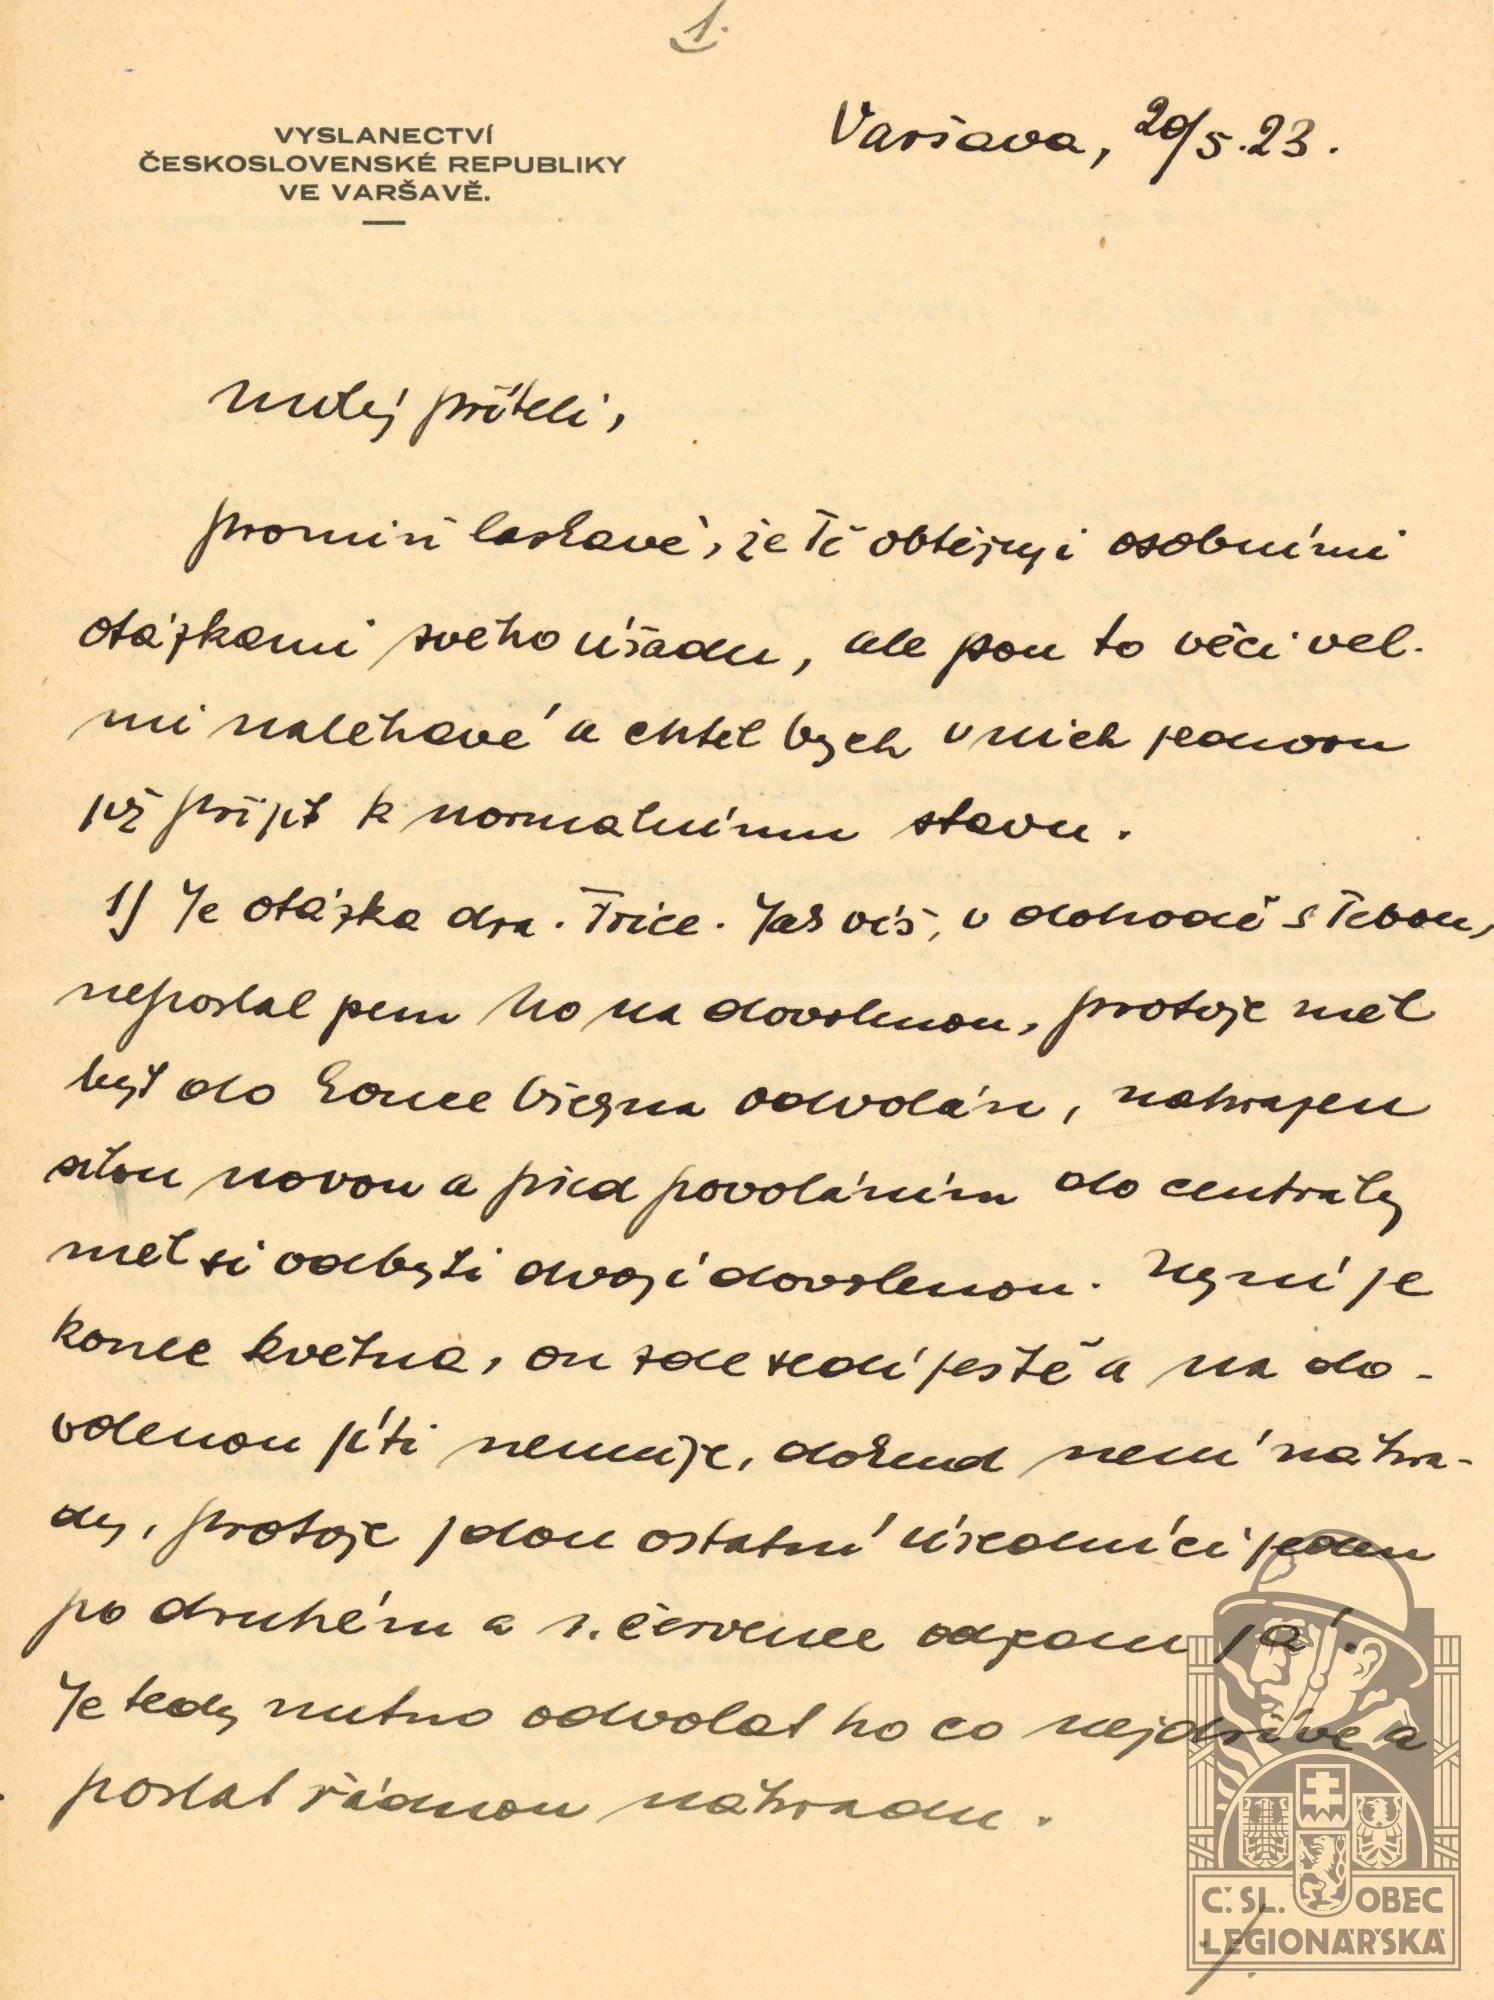 1.
VYSLANECTVÍ
ČESKOSLOVENSKÉ REPUBLIKY
VE VARŠAVĚ.
Varšava, 20/5.23.
Milý příteli,
promiň laskavě, že Tě obtěžuji osobními
otázkami svého úřadu, ale jsou to věci vel-
mi naléhavé a chtěl bych v nich jednou
již přijít k normálnímu stavu.
1) Je otázka dra. Trice. Jak víš, v dohodě s Tebou,
neposlal jsem ho na dovolenou, protože měl
být do konce března odvolán, nahrazen
silou novou a před povoláním do centrály
měl si odbýti dvojí dovolenou. Nyní je
konec května, on zde sedí ještě a na do-
volenou jíti nemůže, dokud není náhra-
dy, protože jdou ostatní úředníci jeden
po druhém a 1. července odjedu já.
Je tedy nutno odvolat ho co nejdříve a
poslat řádnou náhradu.
Č. SL. OBEC
LEGIONÁŘSKÁ